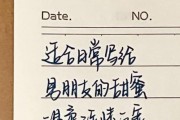 Date. NO.
适合日常写给
男朋友的甜蜜